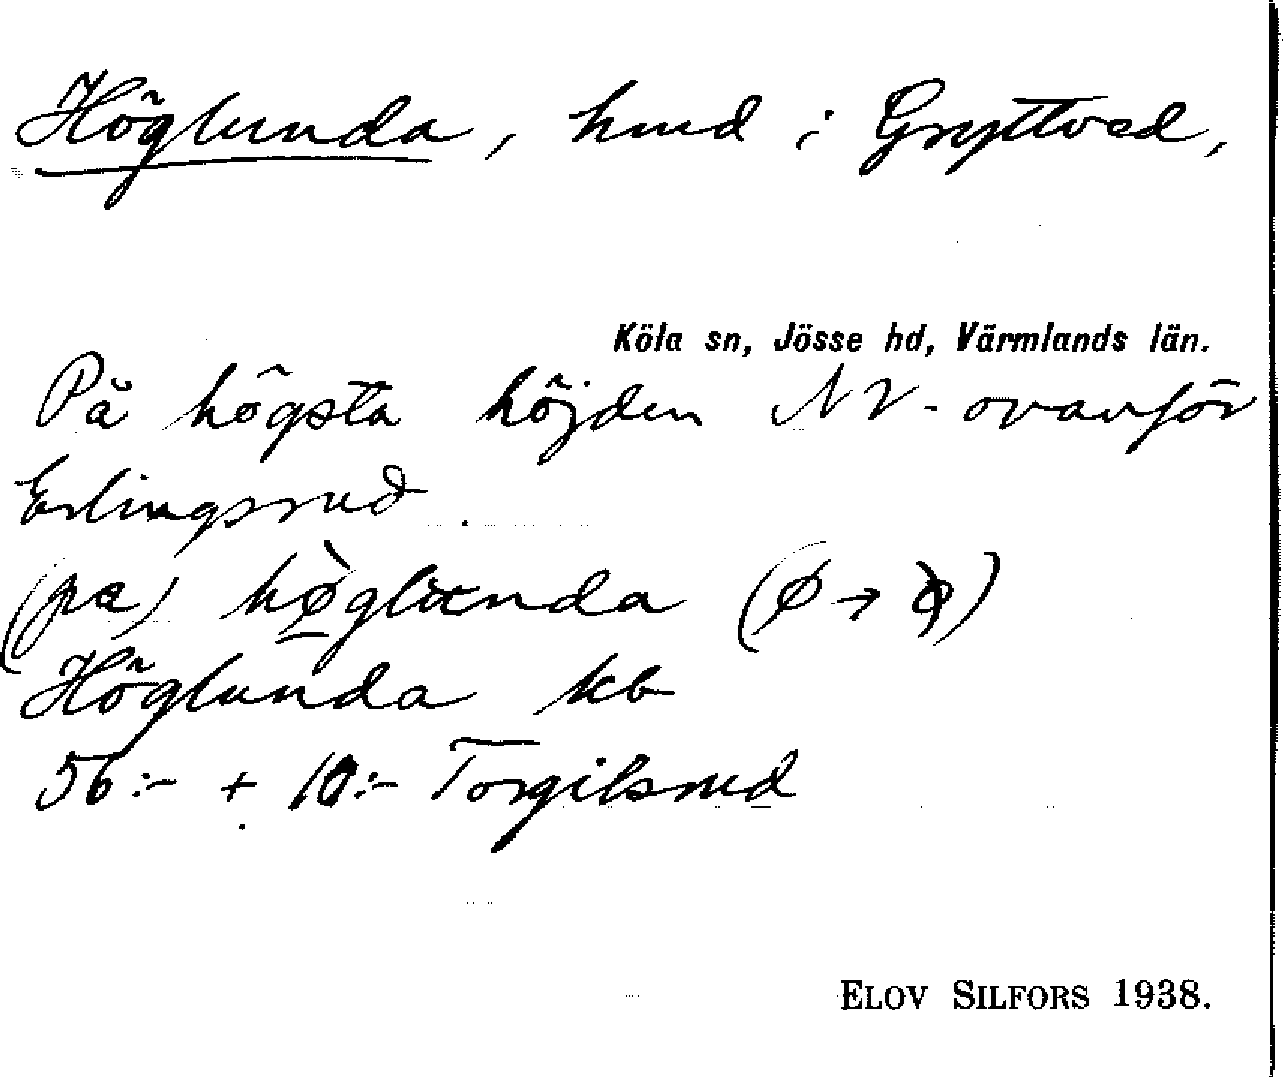 Höglunda, hmd i Gryttved,
Köla sn, Jösse hd, Värmlands län.
På högsta höjden NV-ovanför
Erlingsrud
(pa) hø̀glunda (ø→
Höglunda kb
56:- + 10:- Torgilsrud
ELOV SILFORS 1938.